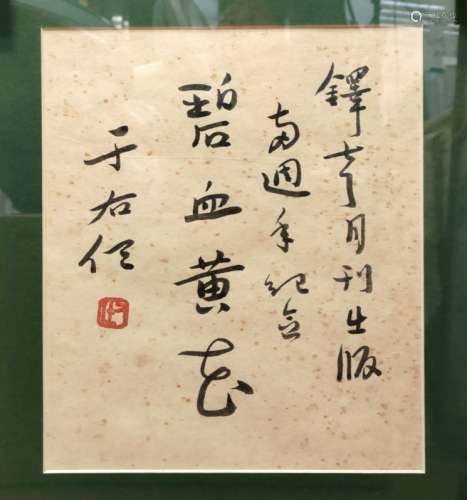 鐸声月刊出版
两週年紀念
碧血黄花
于右任